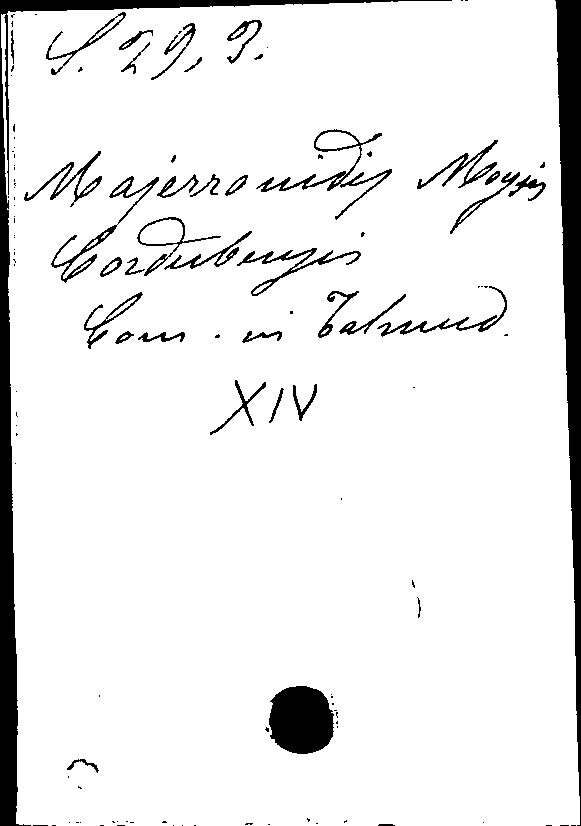 S. 29, 3.
Majerronidis Moysis
Cordubensis
Com. in Talmud.
XIV